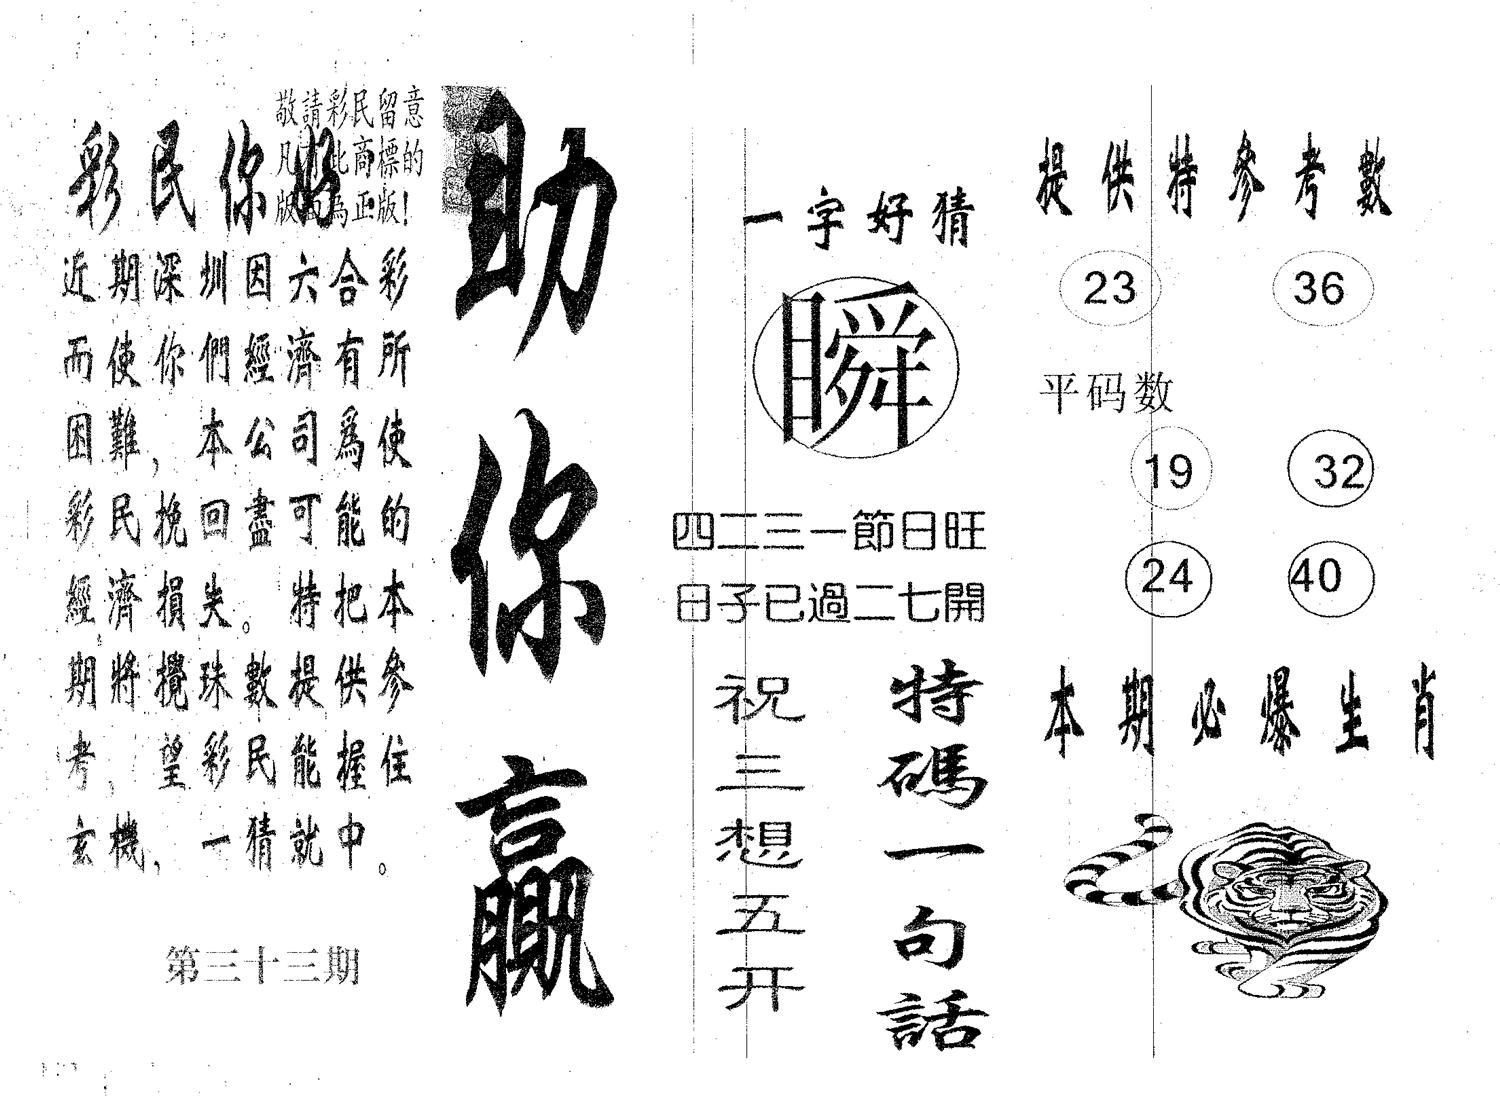 敬請彩民留意
凡 此商標的
版 為正版！
彩民你好
近期深圳因六合彩
而使你們經濟有所
困難，本公司爲使
彩民挽回盡可能的
經濟損失。特把本
期將攪珠數提供參
考，望彩民能握住
玄機，一猜就中。
第三十三期
助你贏
一字好猜
瞬
四二三一節日旺
日子已過二七開
特碼一句話
祝三想五开
提供特參考數
23 36
平码数
19 32
24 40
本期必爆生肖